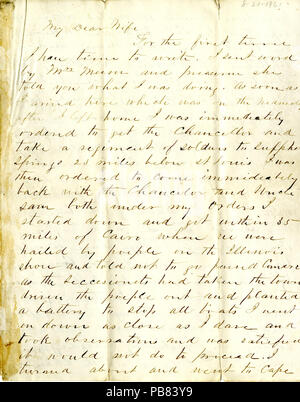 8-21-1861
My Dear Wife
For the first time
I have time to write. I sent word
by Mrs Mason and presume she
told you what I was doing. As soon as
I arrived here which was on the
after I left home I was immediately
ordered to get the Chancellor and
take a regiment of soldiers to Sulpher
Springs 23 miles below St Louis I was
then ordered to come immediately
back with the Chancelor and Uncle
Sam both under my orders I
started down and got within 35
miles of Cairo when we were
hailed by people on the Illinois
shore and told not to go
as the secessionists had taken the town
driven the people out and planted
a battery to stop all boats I went
on down as close as I dare and
took observations and was satisfied
it would not do to procead. I
turned about and went to Cape
alamy
Image ID: PB83Y9
www.alamy.com